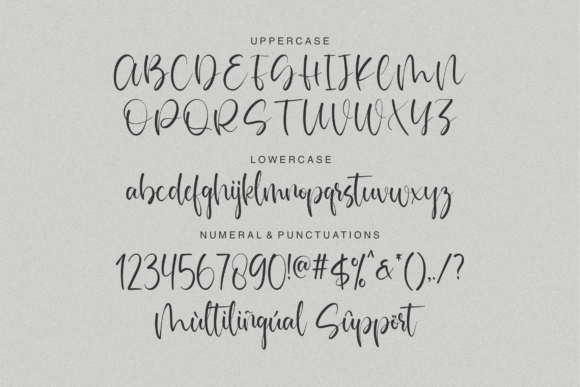 UPPERCASE
ABCDEFGHIJKLMN
OPQRSTUVWXYZ
LOWERCASE
abcdefghijklmnopqrstuvwxyz
NUMERAL & PUNCTUATIONS
1234567890!@#$%^&*(),./?
Mùltiliñgúal Sûppört